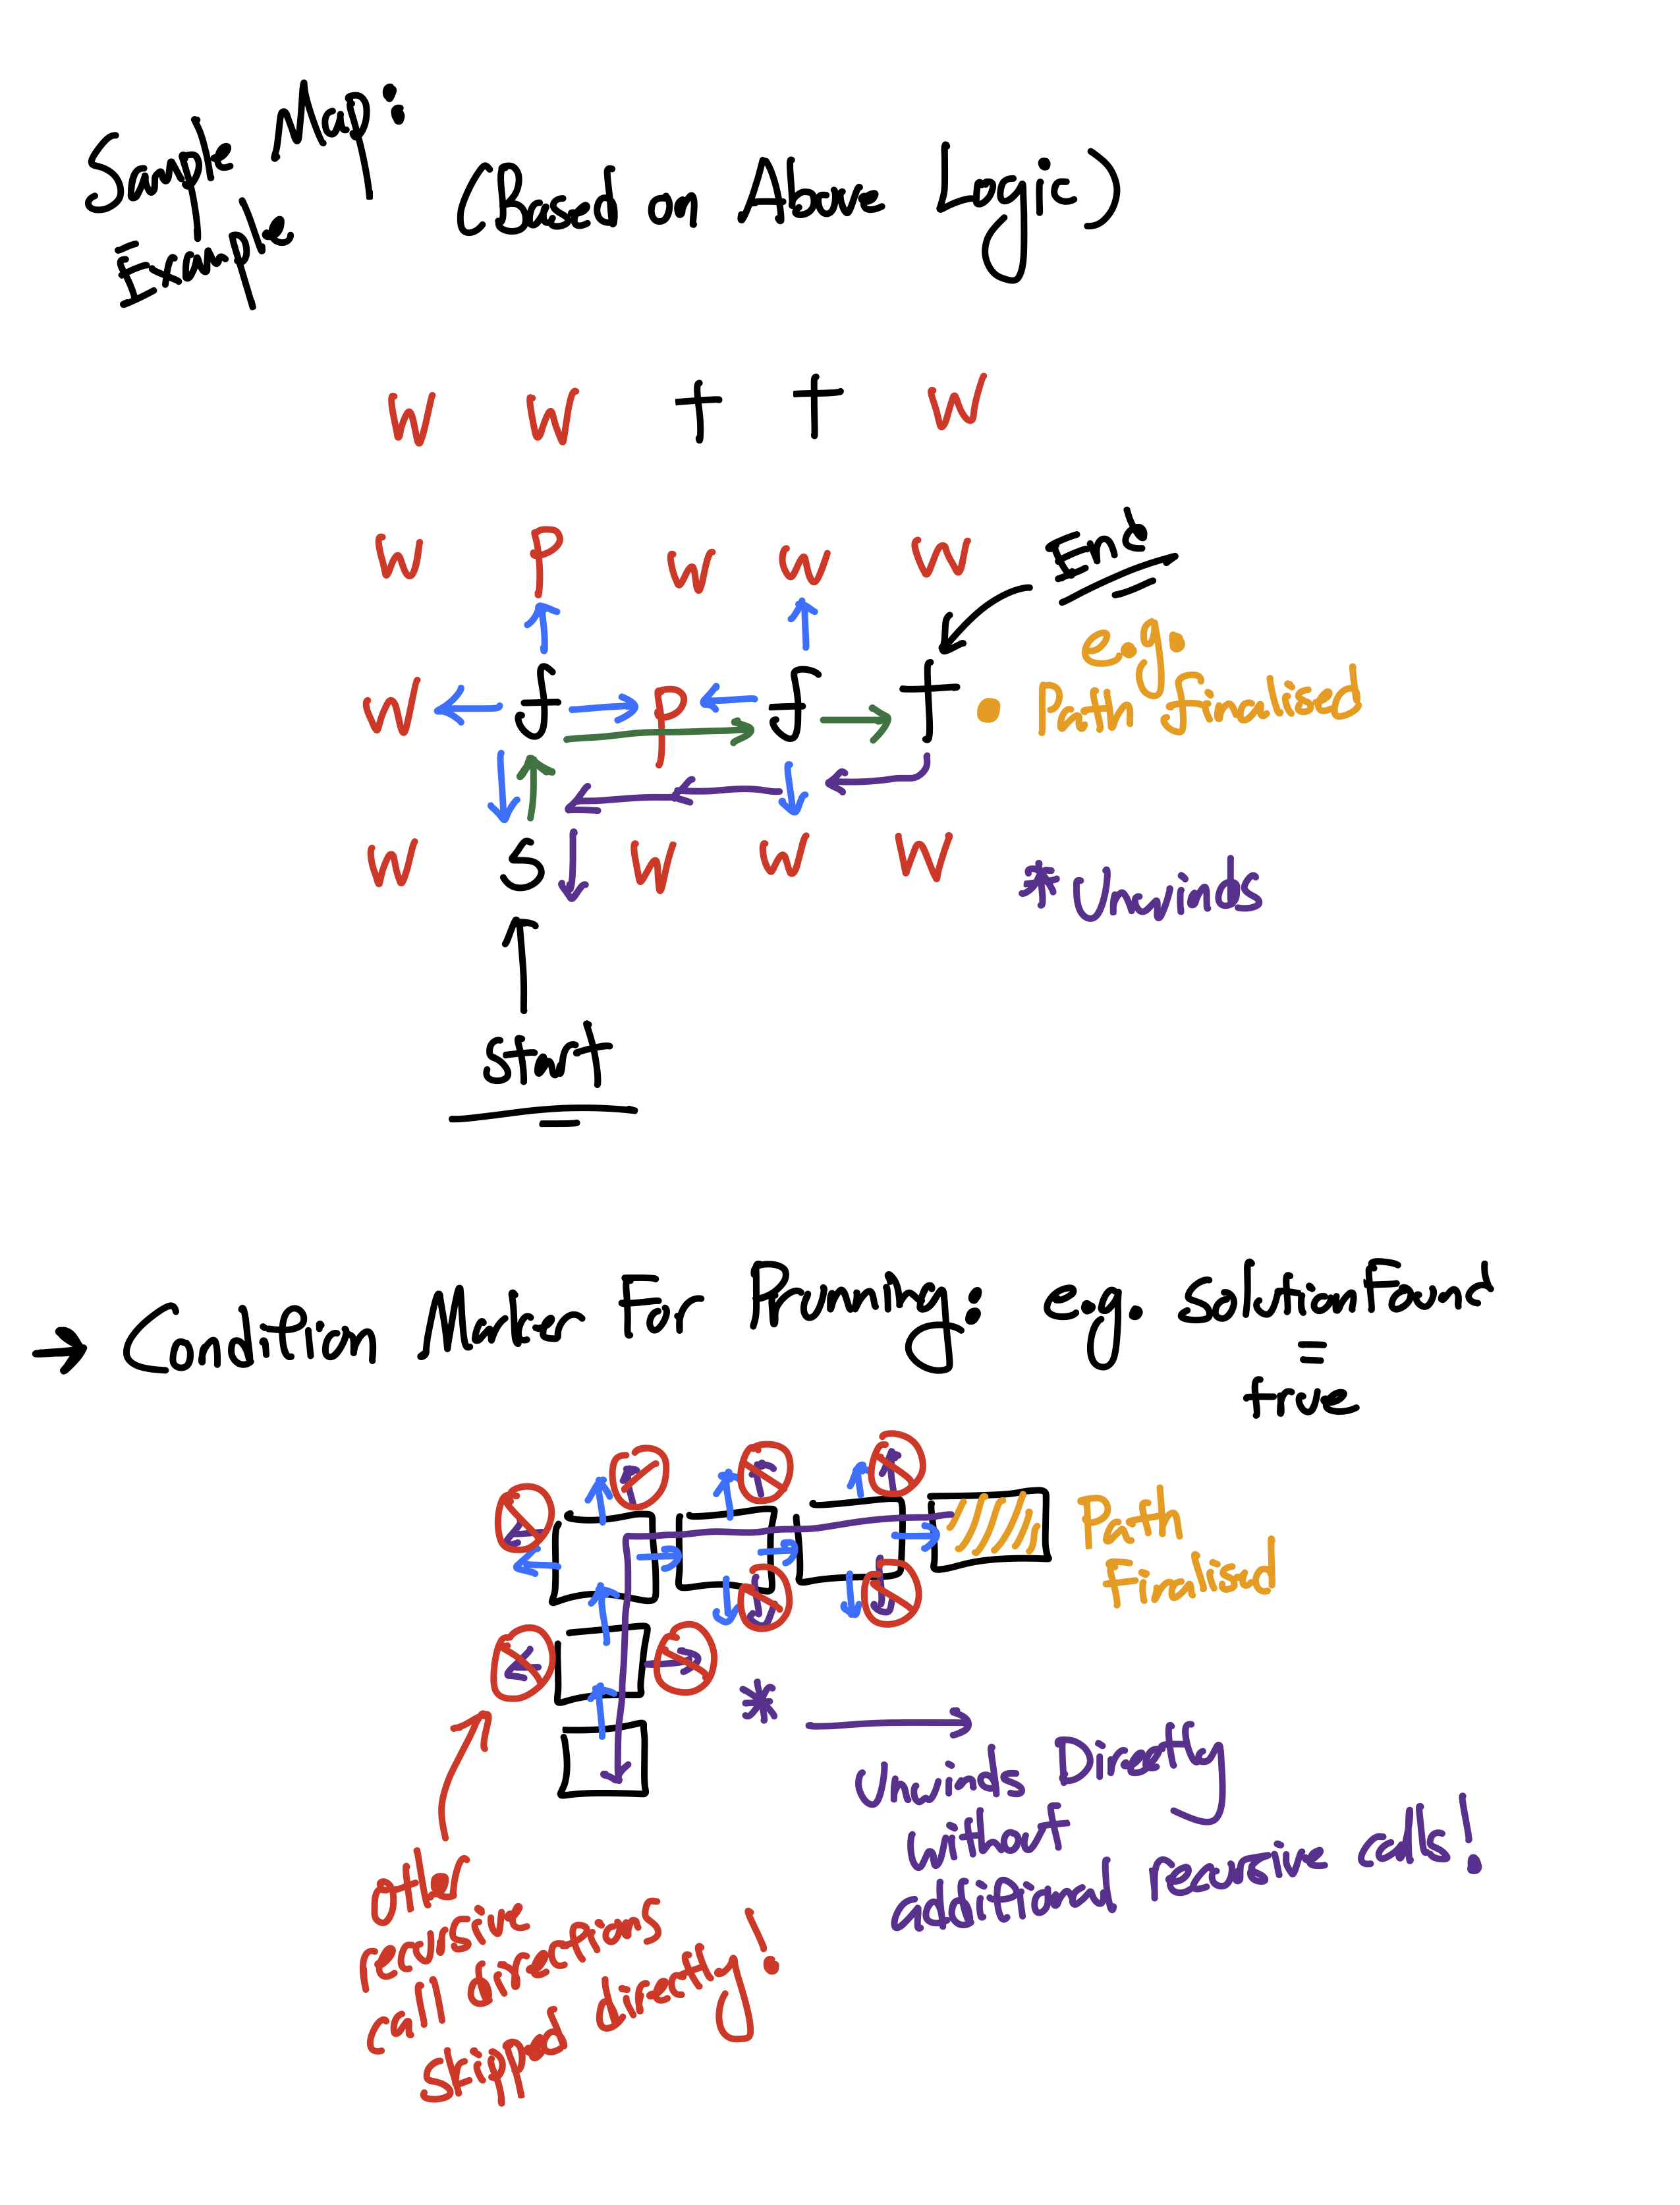 Sample Map:
Example
(Based on Above Logic)
W W t t W
W P W W W
End
e.g.
W f P f t . Path finalised
W S W W W
* Unwinds
Start
→ Condition Maker For Prunning: e.g. solutionFound
=
true
Path
Finalised
*
Unwinds Directly
without
additional recursive calls!
other
recursive
call directions
skipped directly!